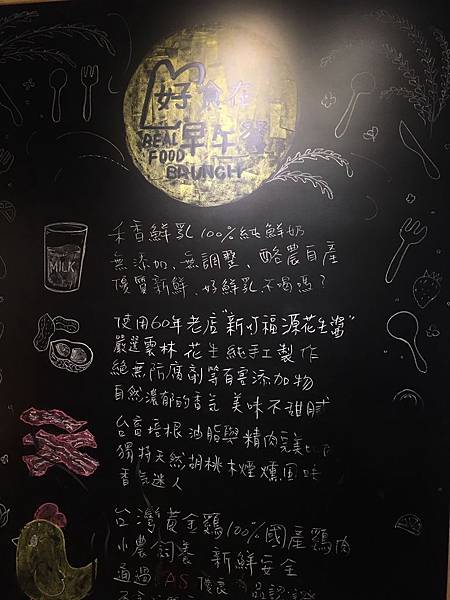 好食在
早午餐
REAL
FOOD
BRUNCH
MILK
禾香鮮乳100%純鮮奶
無添加、無調整、酪農自產
優質新鮮、好鮮乳不喝嗎？
使用60年老店"新竹福源花生醬"
嚴選雲林花生純手工製作
絕無防腐劑等有害添加物
自然濃郁的香氣 美味不甜膩
台畜培根油脂與精肉完美
獨特天然胡桃木煙燻風味
香氣迷人
台灣黃金雞100%國產雞肉
小農飼養 新鮮安全
通過 AS 優良 品認證